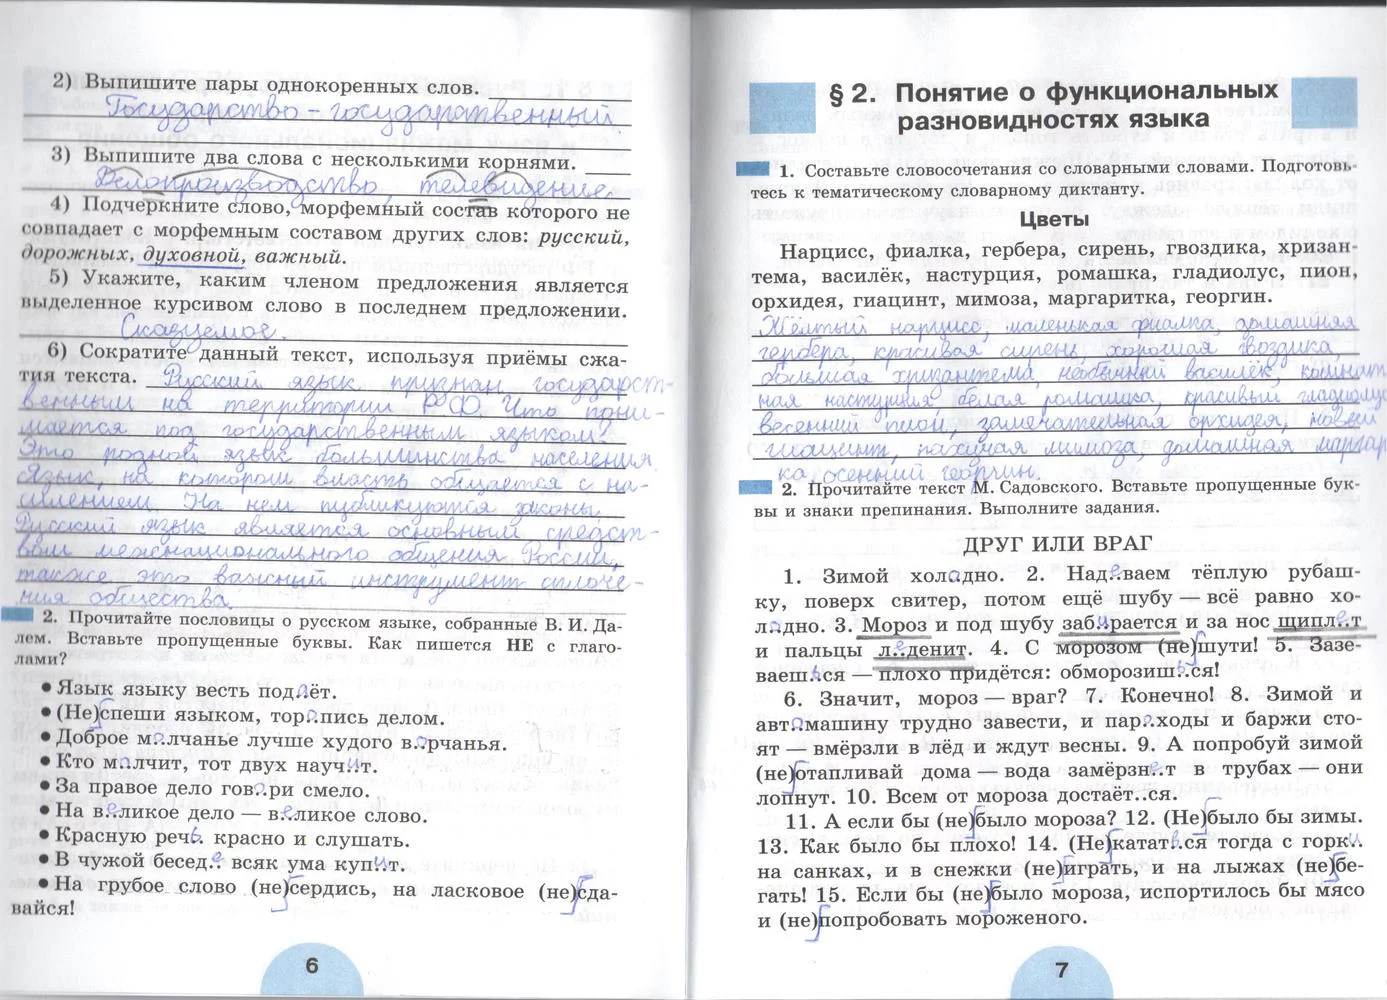 2) Выпишите пары однокоренных слов.
Государство – государственный
3) Выпишите два слова с несколькими корнями.
Делопроизводство, телевидение.
4) Подчеркните слово, морфемный состав которого не
совпадает с морфемным составом других слов: русский,
дорожных, духовной, важный.
5) Укажите, каким членом предложения является
выделенное курсивом слово в последнем предложении.
Сказуемое.
6) Сократите данный текст, используя приёмы сжа-
тия текста. Русский язык признан государст-
венным на территории РФ. Что пони-
мается под государственным языком?
Это родной язык большинства населения.
Язык, на котором власть общается с на-
силением. На нем публикуются законы.
Русский язык является основным средст-
вом межнационального общения России,
также это важный инструмент сплоче-
ния общества.
2. Прочитайте пословицы о русском языке, собранные В. И. Да-
лем. Вставьте пропущенные буквы. Как пишется НЕ с глаго-
лами?
• Язык языку весть подаёт.
• (Не)спеши языком, торопись делом.
• Доброе молчанье лучше худого ворчанья.
• Кто молчит, тот двух научит.
• За правое дело говори смело.
• На великое дело — великое слово.
• Красную речь красно и слушать.
• В чужой беседе всяк ума купит.
• На грубое слово (не)сердись, на ласковое (не)сда-
вайся!
6
§ 2. Понятие о функциональных
разновидностях языка
1. Составьте словосочетания со словарными словами. Подготовь-
тесь к тематическому словарному диктанту.
Цветы
Нарцисс, фиалка, гербера, сирень, гвоздика, хризан-
тема, василёк, настурция, ромашка, гладиолус, пион,
орхидея, гиацинт, мимоза, маргаритка, георгин.
Жёлтый нарцисс, маленькая фиалка, домашняя
гербера, красивая сирень, хорошая гвоздика,
большая хризантема, необычный василёк, комнат
ная настурция, белая ромашка, красивый гладиолус
весенний пион, замечательная орхидея, новый
гиацинт, пахучая мимоза, домашняя маргар
ка, осенний георгин.
2. Прочитайте текст М. Садовского. Вставьте пропущенные бук-
вы и знаки препинания. Выполните задания.
ДРУГ ИЛИ ВРАГ
1. Зимой холодно. 2. Надеваем тёплую рубаш-
ку, поверх свитер, потом ещё шубу — всё равно хо-
лодно. 3. Мороз и под шубу забирается и за нос щиплет
и пальцы леденит. 4. С морозом (не)шути! 5. Зазе-
ваешься — плохо придётся: обморозишься!
6. Значит, мороз — враг? 7. Конечно! 8. Зимой и
автомашину трудно завести, и пароходы и баржи сто-
ят — вмёрзли в лёд и ждут весны. 9. А попробуй зимой
(не)отапливай дома — вода замёрзнет в трубах — они
лопнут. 10. Всем от мороза достаёт..ся.
11. А если бы (не)было мороза? 12. (Не)было бы зимы.
13. Как было бы плохо! 14. (Не)катат..ся тогда с горки
на санках, и в снежки (не)играть, и на лыжах (не)бе-
гать! 15. Если бы (не)было мороза, испортилось бы мясо
и (не)попробовать мороженого.
7